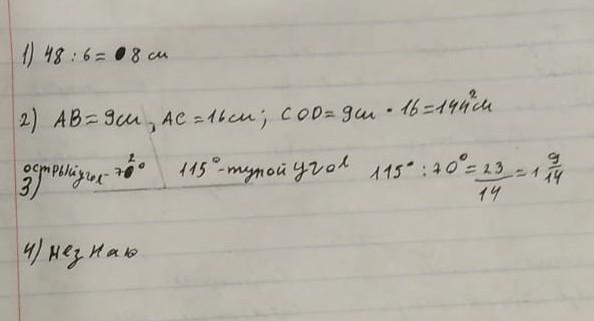 1) 48 : 6 = 8 см
2) AB = 9см, AC = 16см; COD = 9см · 16 = 144²см
3) острый угол - 70° 115° - тупой угол 115° : 70° = 23/14 = 1 9/14
4) незнаю